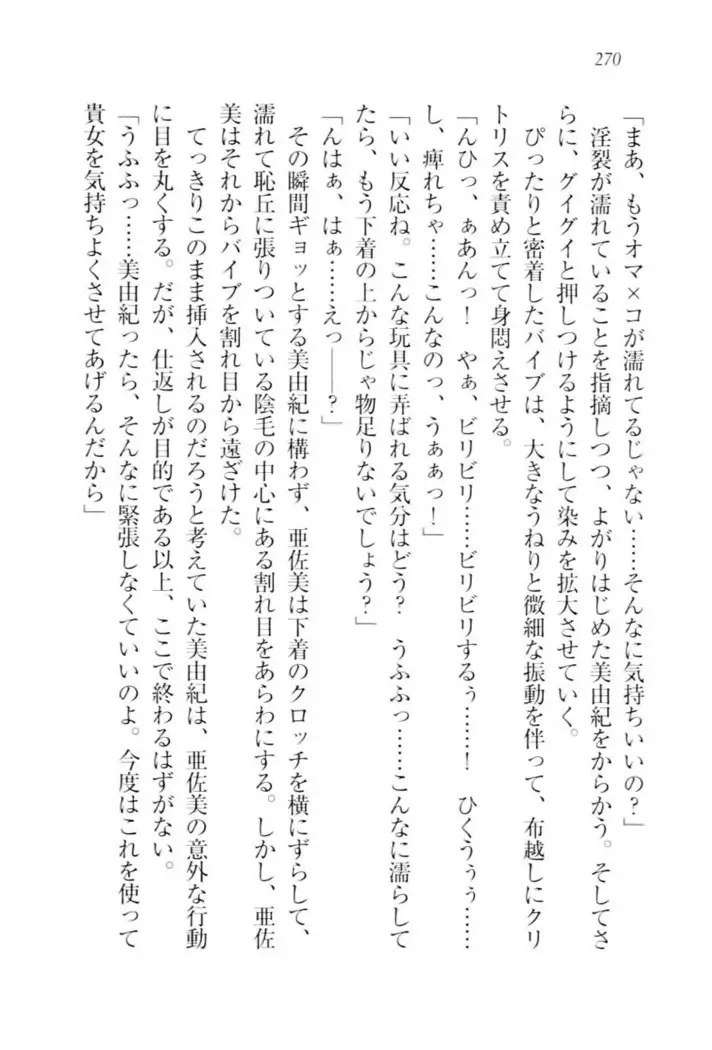 270
「まあ、もうオマ×コが濡れてるじゃない……そんなに気持ちいいの?」
淫裂が濡れていることを指摘しつつ、よがりはじめた美由紀をからかう。そしてさ
らに、グイグイと押しつけるようにして染みを拡大させていく。
ぴったりと密着したバイブは、大きなうねりと微細な振動を伴って、布越しにクリ
トリスを責め立てて身悶えさせる。
「んひっ、ぁあんっ! やぁ、ビリビリ……ビリビリするぅ……! ひくうぅぅ……
し、痺れちゃ……こんなのっ、うぁぁっ!」
「いい反応ね。こんな玩具に弄ばれる気分はどう? うふふっ……こんなに濡らして
たら、もう下着の上からじゃ物足りないでしょう?」
「んはぁ、はぁ……えっ――?」
その瞬間ギョッとする美由紀に構わず、亜佐美は下着のクロッチを横にずらして、
濡れて恥丘に張りついている陰毛の中心にある割れ目をあらわにする。しかし、亜佐
美はそれからバイブを割れ目から遠ざけた。
てっきりこのまま挿入されるのだろうと考えていた美由紀は、亜佐美の意外な行動
に目を丸くする。だが、仕返しが目的である以上、ここで終わるはずがない。
「うふふっ……美由紀ったら、そんなに緊張しなくていいのよ。今度はこれを使って
貴女を気持ちよくさせてあげるんだから」